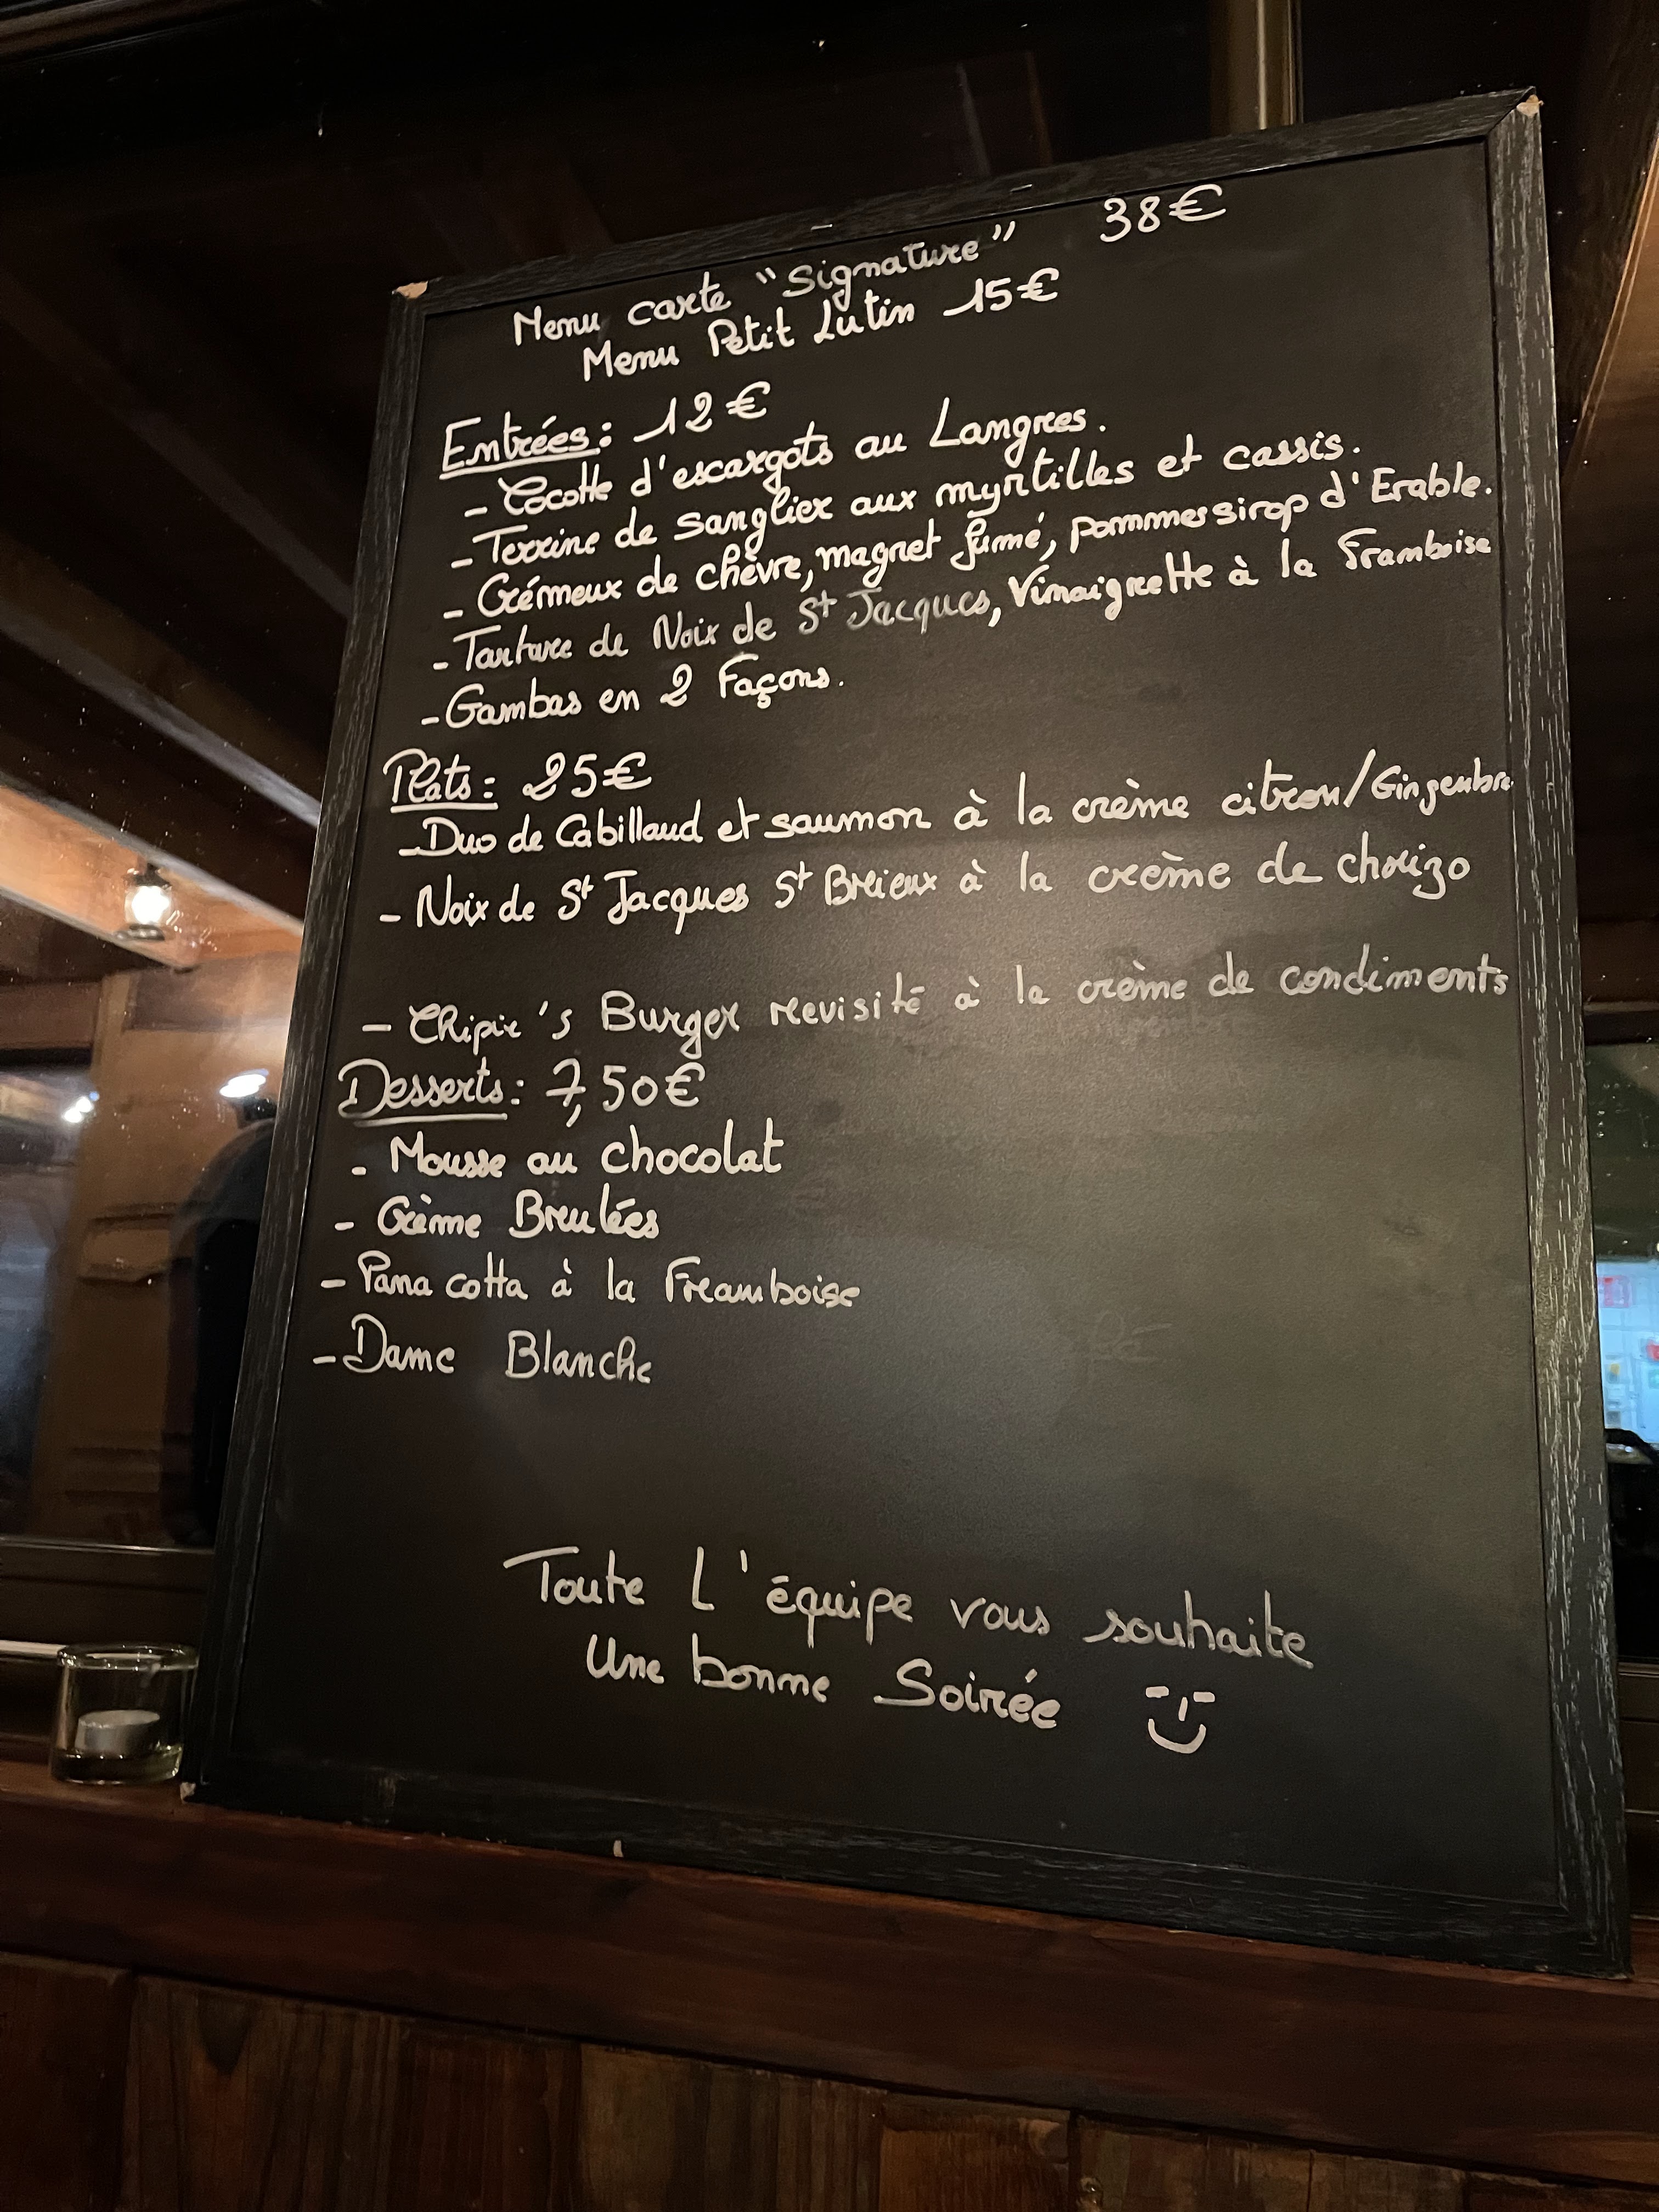 Menu carte "Signature" 38€
Menu Petit Lutin 15€
Entrées: 12€
- Cocotte d'escargots au Langres.
- Terrine de sanglier aux myrtilles et cassis.
- Crémeux de chèvre, magret fumé, pommes sirop d'Erable.
- Tartare de Noix de St Jacques, Vinaigrette à la Framboise
- Gambas en 2 Façons.
Plats: 25€
- Duo de Cabillaud et saumon à la crème citron/Gingembre
- Noix de St Jacques St Brieux à la crème de chorizo
- Chipie's Burger revisité à la crème de condiments
Desserts: 7,50€
- Mousse au chocolat
- Crème Brulées
- Pana cotta à la Framboise
- Dame Blanche
Toute L'équipe vous souhaite
Une bonne Soirée